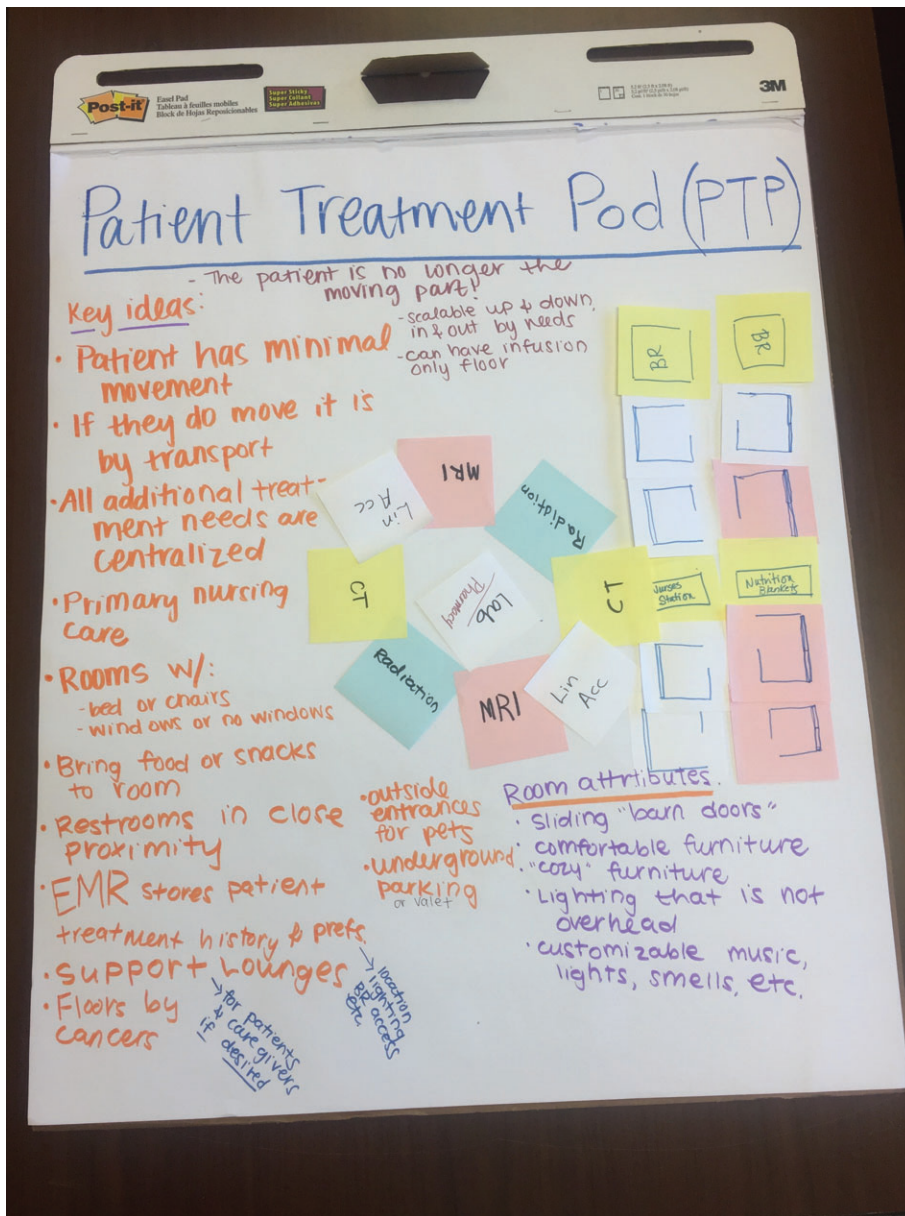 Post-it
Easel Pad
Tableau à feuilles mobiles
Block de Hojas Reposicionables
Super Sticky
Super Collant
Super Adhesivas
3M
Patient Treatment Pod (PTP)
- The patient is no longer the
moving part!
- scalable up & down,
in & out by needs
- can have infusion
only floor
Key ideas:
• Patient has minimal
movement
• If they do move it is
by transport
• All additional treat-
ment needs are
centralized
• Primary nursing
care
• Rooms w/:
- bed or chairs
- windows or no windows
• Bring food or snacks
to room
• Restrooms in close
proximity
• EMR stores patient
treatment history & prefs.
→ location
lighting
BR access
etc
• Support Lounges
→ for patients
& care givers
if desired
• Floors by
cancers
• outside
entrances
for pets
• underground
parking
or valet
MRI
Lin
Acc
Radiation
CT
Lab
Pharmacy
CT
Radiation
MRI
Lin
Acc
BR
BR
Nurses
Station
Nutrition
Blankets
Room attrtibutes.
• sliding "barn doors"
• comfortable furniture
• "cozy" furniture
• Lighting that is not
overhead
• customizable music,
lights, smells, etc.